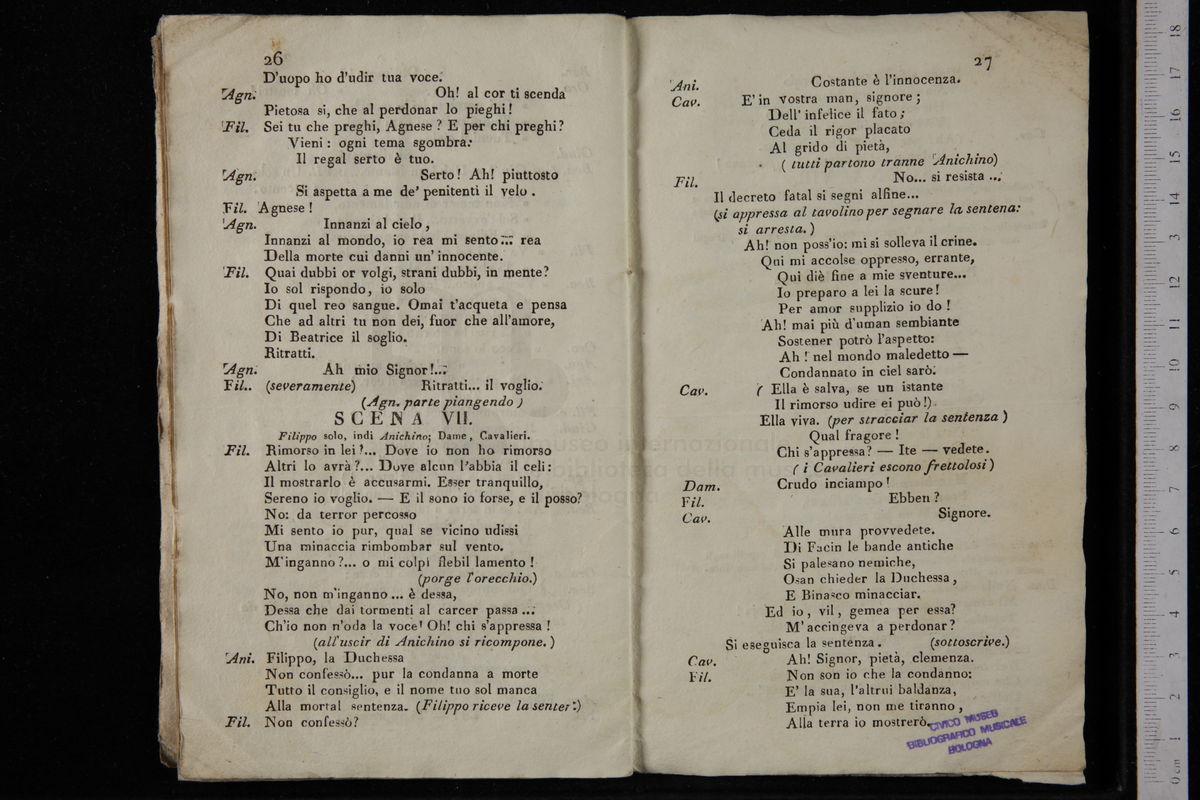 26
D'uopo ho d'udir tua voce.
Agn. Oh! al cor ti scenda
Pietosa si, che al perdonar lo pieghi!
Fil. Sei tu che preghi, Agnese? E per chi preghi?
Vieni: ogni tema sgombra:
Il regal serto è tuo.
Agn. Serto! Ah! piuttosto
Si aspetta a me de' penitenti il velo.
Fil. Agnese!
Agn. Innanzi al cielo,
Innanzi al mondo, io rea mi sento... rea
Della morte cui danni un' innocente.
Fil. Quai dubbi or volgi, strani dubbi, in mente?
Io sol rispondo, io solo
Di quel reo sangue. Omai t'acqueta e pensa
Che ad altri tu non dei, fuor che all'amore,
Di Beatrice il soglio.
Ritratti.
Agn. Ah mio Signor!...
Fil.. (severamente) Ritratti... il voglio.
(Agn. parte piangendo)
SCENA VII.
Filippo solo, indi Anichino; Dame, Cavalieri.
Fil. Rimorso in lei?... Dove io non ho rimorso
Altri lo avrà?... Dove alcun l'abbia il celi:
Il mostrarlo è accusarmi. Esser tranquillo,
Sereno io voglio. — E il sono io forse, e il posso?
No: da terror percosso
Mi sento io pur, qual se vicino udissi
Una minaccia rimbombar sul vento.
M'inganno?... o mi colpì flebil lamento!
(porge l'orecchio.)
No, non m'inganno... è dessa,
Dessa che dai tormenti al carcer passa...
Ch'io non n'oda la voce! Oh! chi s'appressa!
(all'uscir di Anichino si ricompone.)
Ani. Filippo, la Duchessa
Non confessò... pur la condanna a morte
Tutto il consiglio, e il nome tuo sol manca
Alla mortal sentenza. (Filippo riceve la senten.)
Fil. Non confessò?
27
Ani. Costante è l'innocenza.
Cav. E' in vostra man, signore;
Dell' infelice il fato;
Ceda il rigor placato
Al grido di pietà,
(tutti partono tranne Anichino)
Fil. No... si resista...
Il decreto fatal si segni alfine...
(si appressa al tavolino per segnare la sentena:
si arresta.)
Ah! non poss'io: mi si solleva il crine.
Qui mi accolse oppresso, errante,
Qui diè fine a mie sventure...
Io preparo a lei la scure!
Per amor supplizio io do!
Ah! mai più d'uman sembiante
Sostener potrò l'aspetto:
Ah! nel mondo maledetto —
Condannato in ciel sarò.
Cav. (Ella è salva, se un istante
Il rimorso udire ei può!)
Ella viva. (per stracciar la sentenza)
Qual fragore!
Chi s'appressa? — Ite — vedete.
(i Cavalieri escono frettolosi)
Dam. Crudo inciampo!
Fil. Ebben?
Cav. Signore.
Alle mura provvedete.
Di Facin le bande antiche
Si palesano nemiche,
Osan chieder la Duchessa,
E Binasco minacciar.
Ed io, vil, gemea per essa?
M' accingeva a perdonar?
Si eseguisca la sentenza. (sottoscrive.)
Cav. Ah! Signor, pietà, clemenza.
Fil. Non son io che la condanno:
E' la sua, l'altrui baldanza,
Empia lei, non me tiranno,
Alla terra io mostrerò.
CIVICO MUSEO
BIBLIOGRAFICO MUSICALE
BOLOGNA